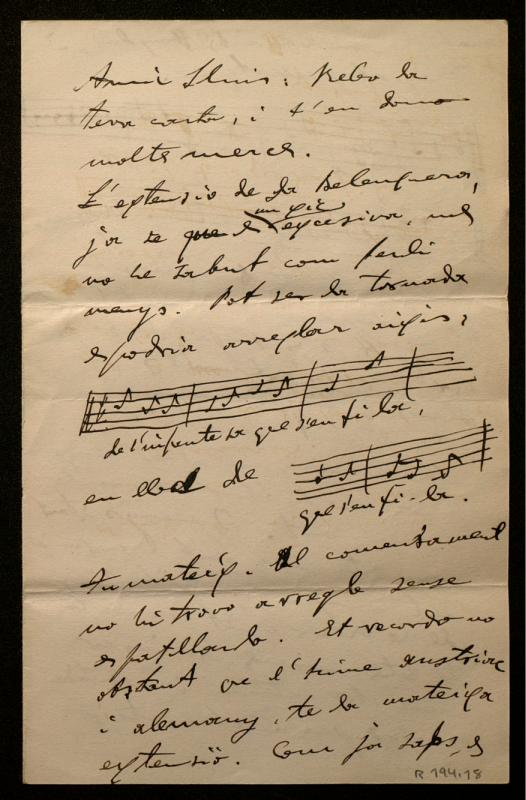 Amic Lluis: Rebo la
teva carta, i t'en dono
moltes mercés.
L'extensió de La Balenguera,
ja se que es un xic excesiva, mes
no he sabut com ferli
menys. Pot ser la tornada
es podria arreglar aixis;
de l'infantesa que s'en fi la,
en lloc de
que s'en fi-la.
Tu mateix. Al comensament
no hi trovo arreglo sense
espatllarlo. Et recordo no
obstant que l'himne austriac
i alemany, te la mateixa
extensió. Com ja saps, es
R 194.18